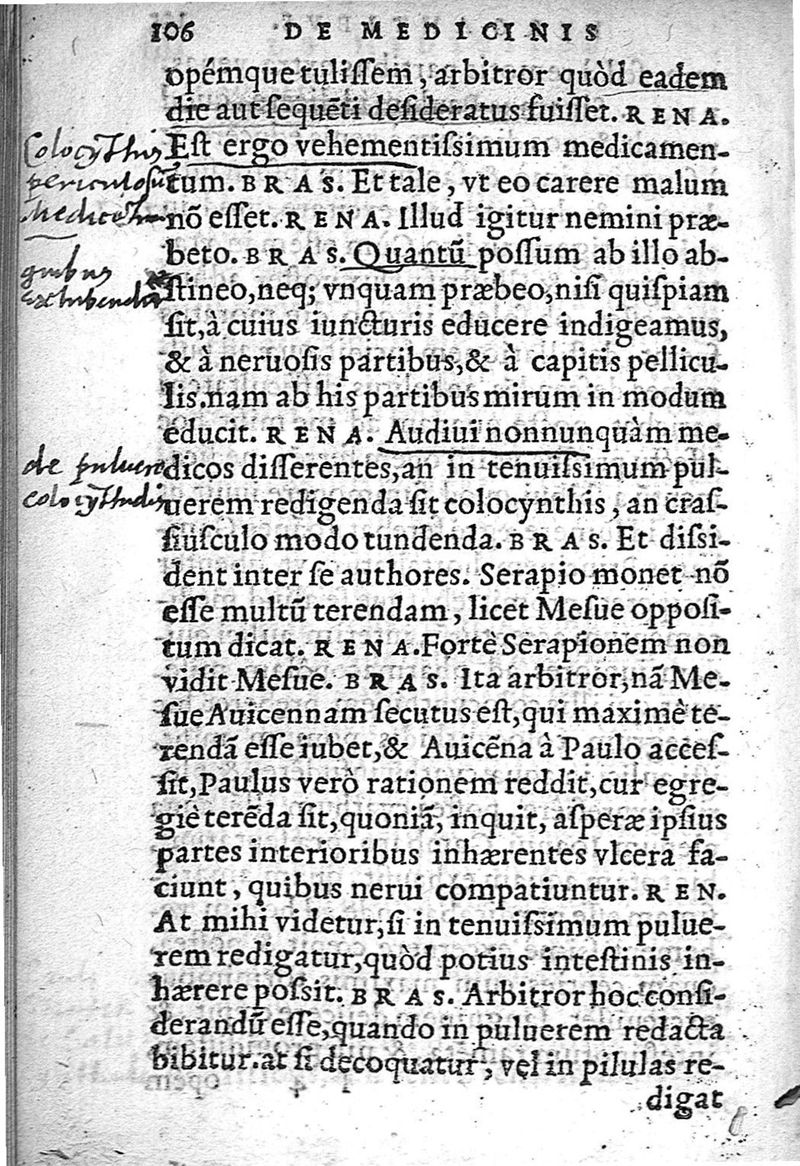 106 DE MEDICINIS
opémque tuliſſem, arbitror quòd eadem
die aut ſequẽti deſideratus fuiſſet. RENA.
Eſt ergo vehementiſsimum medicamen-
tum. BRAS. Et tale, vt eo carere malum
nõ eſſet. RENA. Illud igitur nemini præ-
beto. BRAS. Quantũ poſſum ab illo ab-
ſtineo, neq; vnquam præbeo, niſi quiſpiam
ſit, à cuius iuncturis educere indigeamus,
& à neruoſis partibus, & à capitis pellicu-
lis. nam ab his partibus mirum in modum
educit. RENA. Audiui nonnunquàm me-
dicos diſſerentes, an in tenuiſsimum pul-
uerem redigenda ſit colocynthis, an craſ-
ſiuſculo modo tundenda. BRAS. Et diſsi-
dent inter ſe authores. Serapio monet nõ
eſſe multũ terendam, licet Meſue oppoſi-
tum dicat. RENA. Fortè Serapionem non
vidit Meſue. BRAS. Ita arbitror, nã Me-
ſue Auicennam ſecutus eſt, qui maximè te-
rendã eſſe iubet, & Auicẽna à Paulo acceſ-
ſit, Paulus verò rationem reddit, cur egre-
giè terẽda ſit, quoniã, inquit, aſperæ ipſius
partes interioribus inhærentes vlcera fa-
ciunt, quibus nerui compatiuntur. REN.
At mihi videtur, ſi in tenuiſsimum pulue-
rem redigatur, quòd potius inteſtinis in-
hærere poſsit. BRAS. Arbitror hoc conſi-
derandũ eſſe, quando in puluerem redacta
bibitur. at ſi decoquatur, vel in pilulas re-
digat
Colocythis
quibus
de puluere